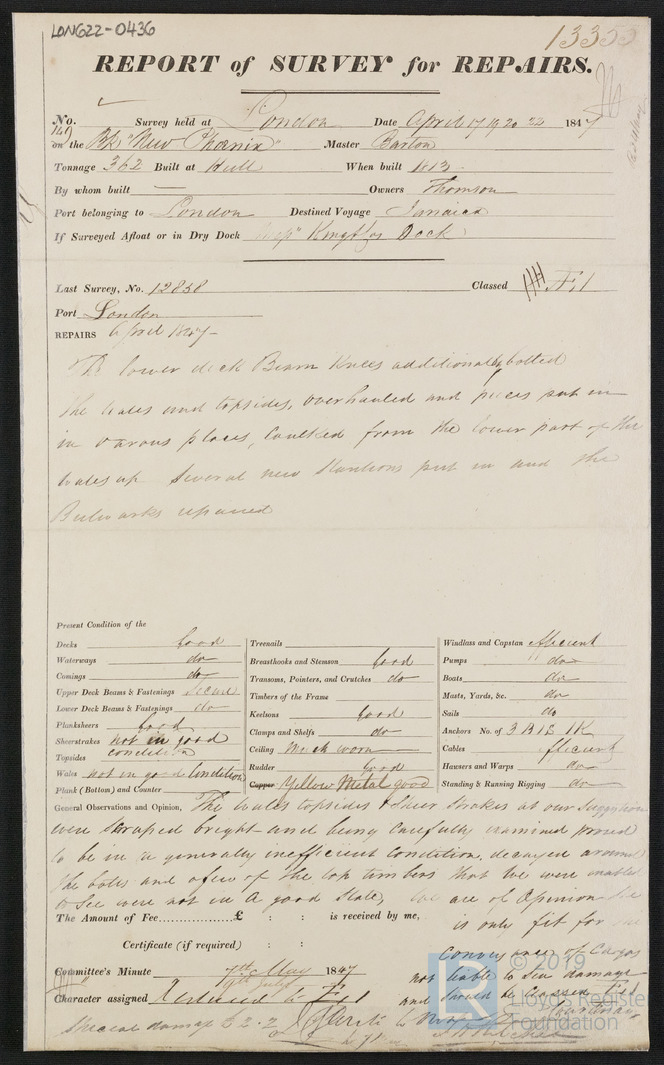 LON622-0436
REPORT of SURVEY for REPAIRS.
No. 149 Survey held at London Date April 17 19 20 22 1847
on the Bk "New Phœnix" Master Barton
Tonnage 362 Built at Hull When built 1813
By whom built — Owners Thomson
Port belonging to London Destined Voyage Jamaica
If Surveyed Afloat or in Dry Dock Dock
Last Survey, No. 12838 Classed
Port London
REPAIRS April 1847 -
The lower deck Beam Knees additionally bolted
The wales and topsides, overhauled and pieces put in
in various places, caulked from the lower part of the
wales up Several new Stantions put in and the
Bulwarks repaired
Present Condition of the
Decks Good
Waterways do
Comings do
Upper Deck Beams & Fastenings Secure
Lower Deck Beams & Fastenings do
Planksheers Good
Sheerstrakes not in good
Topsides condition
Wales not in good Condition
Plank (Bottom) and Counter
Treenails
Breasthooks and Stemson Good
Transoms, Pointers, and Crutches do
Timbers of the Frame
Keelsons Good
Clamps and Shelfs do
Ceiling Much worn
Rudder Good
Copper Yellow Metal good
Windlass and Capstan efficient
Pumps " do
Boats do
Masts, Yards, &c. do
Sails do
Anchors No. of 3 B 1 S 1K
Cables efficient
Hawsers and Warps do
Standing & Running Rigging do
General Observations and Opinion, The wales topsides & Sheer Strakes at our Suggestion
were scraped bright and being carefully examined proved
to be in a generally inefficient condition, decayed around
the bolts and a few of the top timbers that we were enabled
to See were not in a good State, We are of Opinion She
is only fit for the
The Amount of Fee..................£ : : is received by me,
conveyance of Cargo
Certificate (if required) : :
not liable to Sea damage
Committee's Minute 7th May 1847
9th July
and should be Classed
Character assigned Continued to
Special damage £2.2
© 2019
Lloyd's Register
Foundation